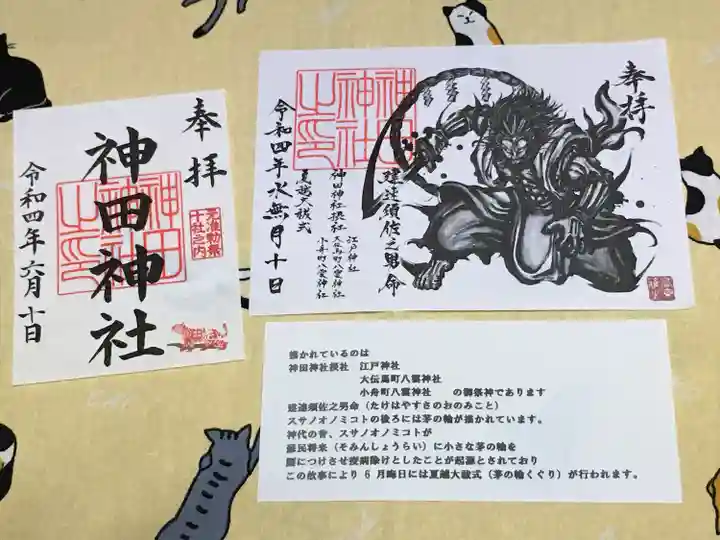 奉拝
神田神社
神田神社之印
元准勅祭十社之内
令和四年六月十日
奉拝
建速須佐之男命
江戸神社
神田神社摂社 大伝馬町八雲神社
小舟町八雲神社
夏越大祓式
令和四年水無月十日
神田神社之印
描かれているのは
神田神社摂社 江戸神社
大伝馬町八雲神社
小舟町八雲神社 の御祭神であります
建速須佐之男命(たけはやすさのおのみこと)
スサノオノミコトの後ろには茅の輪が描かれています。
神代の昔、スサノオノミコトが
蘇民将来(そみんしょうらい)に小さな茅の輪を
腰につけさせ疫病除けとしたことが起源とされており
この故事により6月晦日には夏越大祓式(茅の輪くぐり)が行われます。